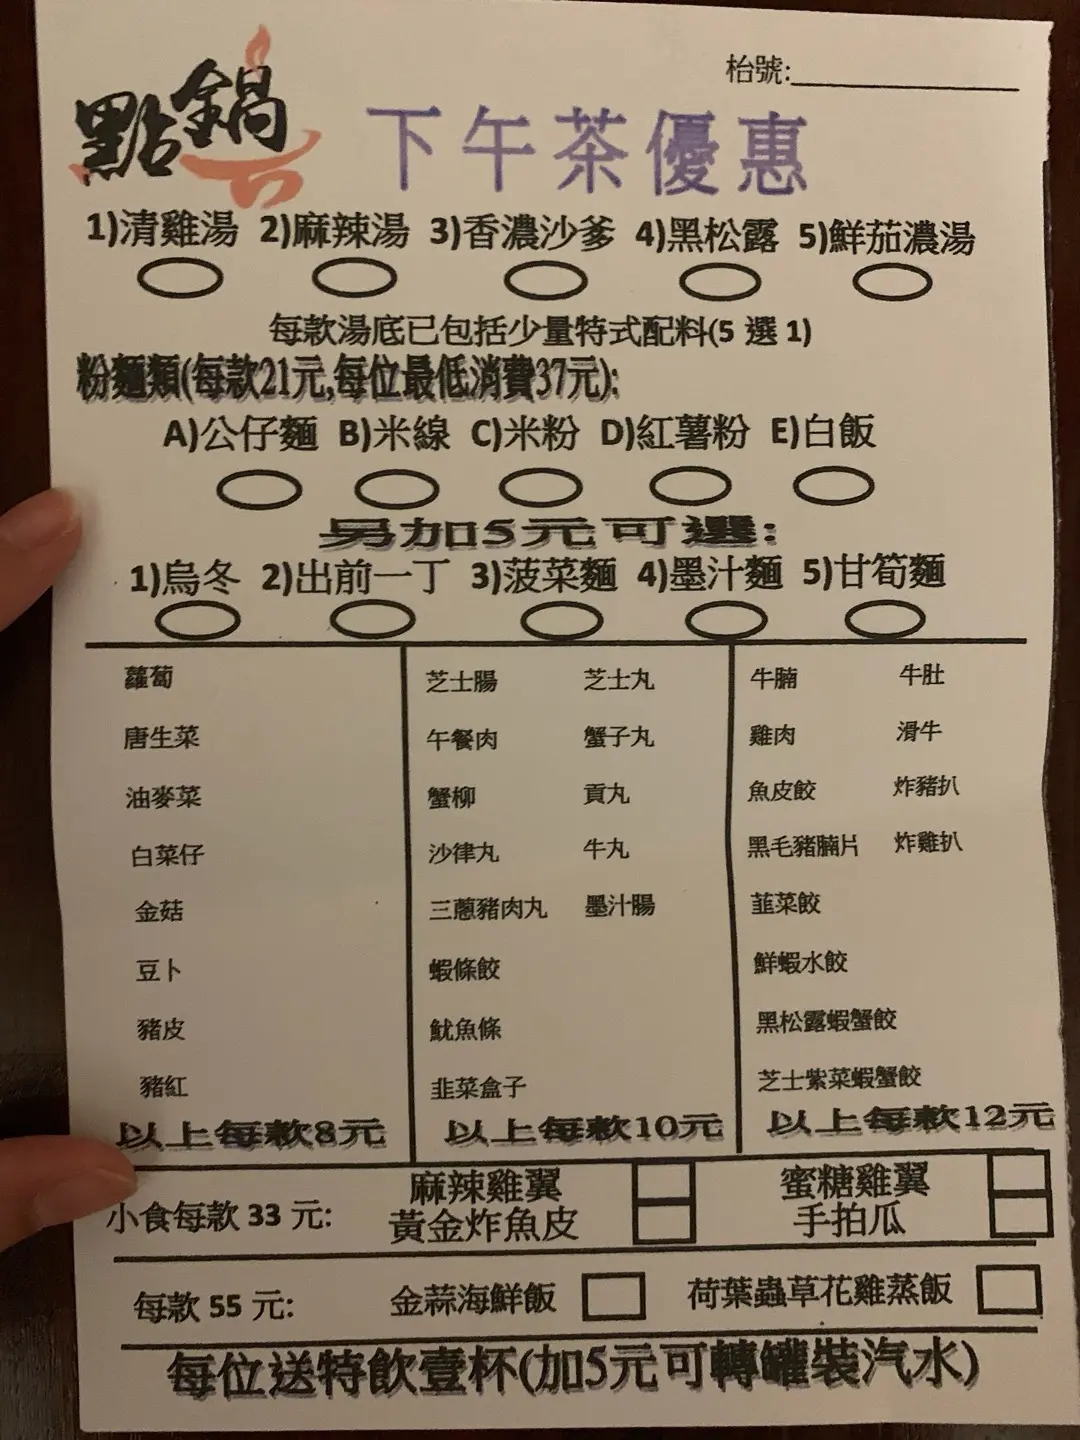 點鍋
枱號:
下午茶優惠
1)清雞湯 2)麻辣湯 3)香濃沙爹 4)黑松露 5)鮮茄濃湯
每款湯底已包括少量特式配料(5 選 1)
粉麵類(每款21元,每位最低消費37元):
A)公仔麵 B)米線 C)米粉 D)紅薯粉 E)白飯
另加5元可選:
1)烏冬 2)出前一丁 3)菠菜麵 4)墨汁麵 5)甘筍麵
蘿蔔
唐生菜
油麥菜
白菜仔
金菇
豆卜
豬皮
豬紅
以上每款8元
芝士腸 芝士丸
午餐肉 蟹子丸
蟹柳 貢丸
沙律丸 牛丸
三蔥豬肉丸 墨汁腸
蝦條餃
魷魚條
韭菜盒子
以上每款10元
牛腩 牛肚
雞肉 滑牛
魚皮餃 炸豬扒
黑毛豬腩片 炸雞扒
韮菜餃
鮮蝦水餃
黑松露蝦蟹餃
芝士紫菜蝦蟹餃
以上每款12元
小食每款 33 元:
麻辣雞翼 蜜糖雞翼
黃金炸魚皮 手拍瓜
每款 55 元: 金蒜海鮮飯 荷葉蟲草花雞蒸飯
每位送特飲壹杯(加5元可轉罐裝汽水)